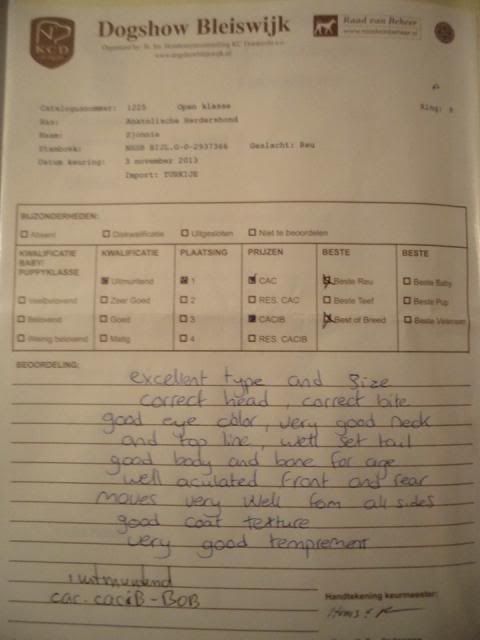 KCD
Dogshow Bleiswijk
www.dogshowbleiswijk.nl
Raad van Beheer
www.raadvanbeheer.nl
Catalogusnummer: 1225 Open klasse
Ring:
Ras: Anatolische Herdershond
Naam: Zjonnie
Stamboek: NHSB BIJL.G-0-2937366 Geslacht: Reu
Datum keuring: 3 november 2013
Import: TURKIJE
BIJZONDERHEDEN:
Absent Diskwalificatie Uitgesloten Niet te beoordelen
KWALIFICATIE BABY/ PUPPYKLASSE
KWALIFICATIE PLAATSING PRIJZEN BESTE BESTE
Uitmuntend 1 CAC Beste Reu Beste Baby
Veelbelovend Zeer Goed 2 RES. CAC Beste Teef Beste Pup
Belovend Goed 3 CACIB Best of Breed Beste Veteraan
Weinig belovend Matig 4 RES. CACIB
BEOORDELING:
excellent type and size
correct head, correct bite
good eye color, very good neck
and top line, well set tail
good body and bone for age
well aculated front and rear
moves very well fom all sides
good coat texture
very good temprement
uutmuntend
cac. caciB - BOB
Handtekening keurmeester: